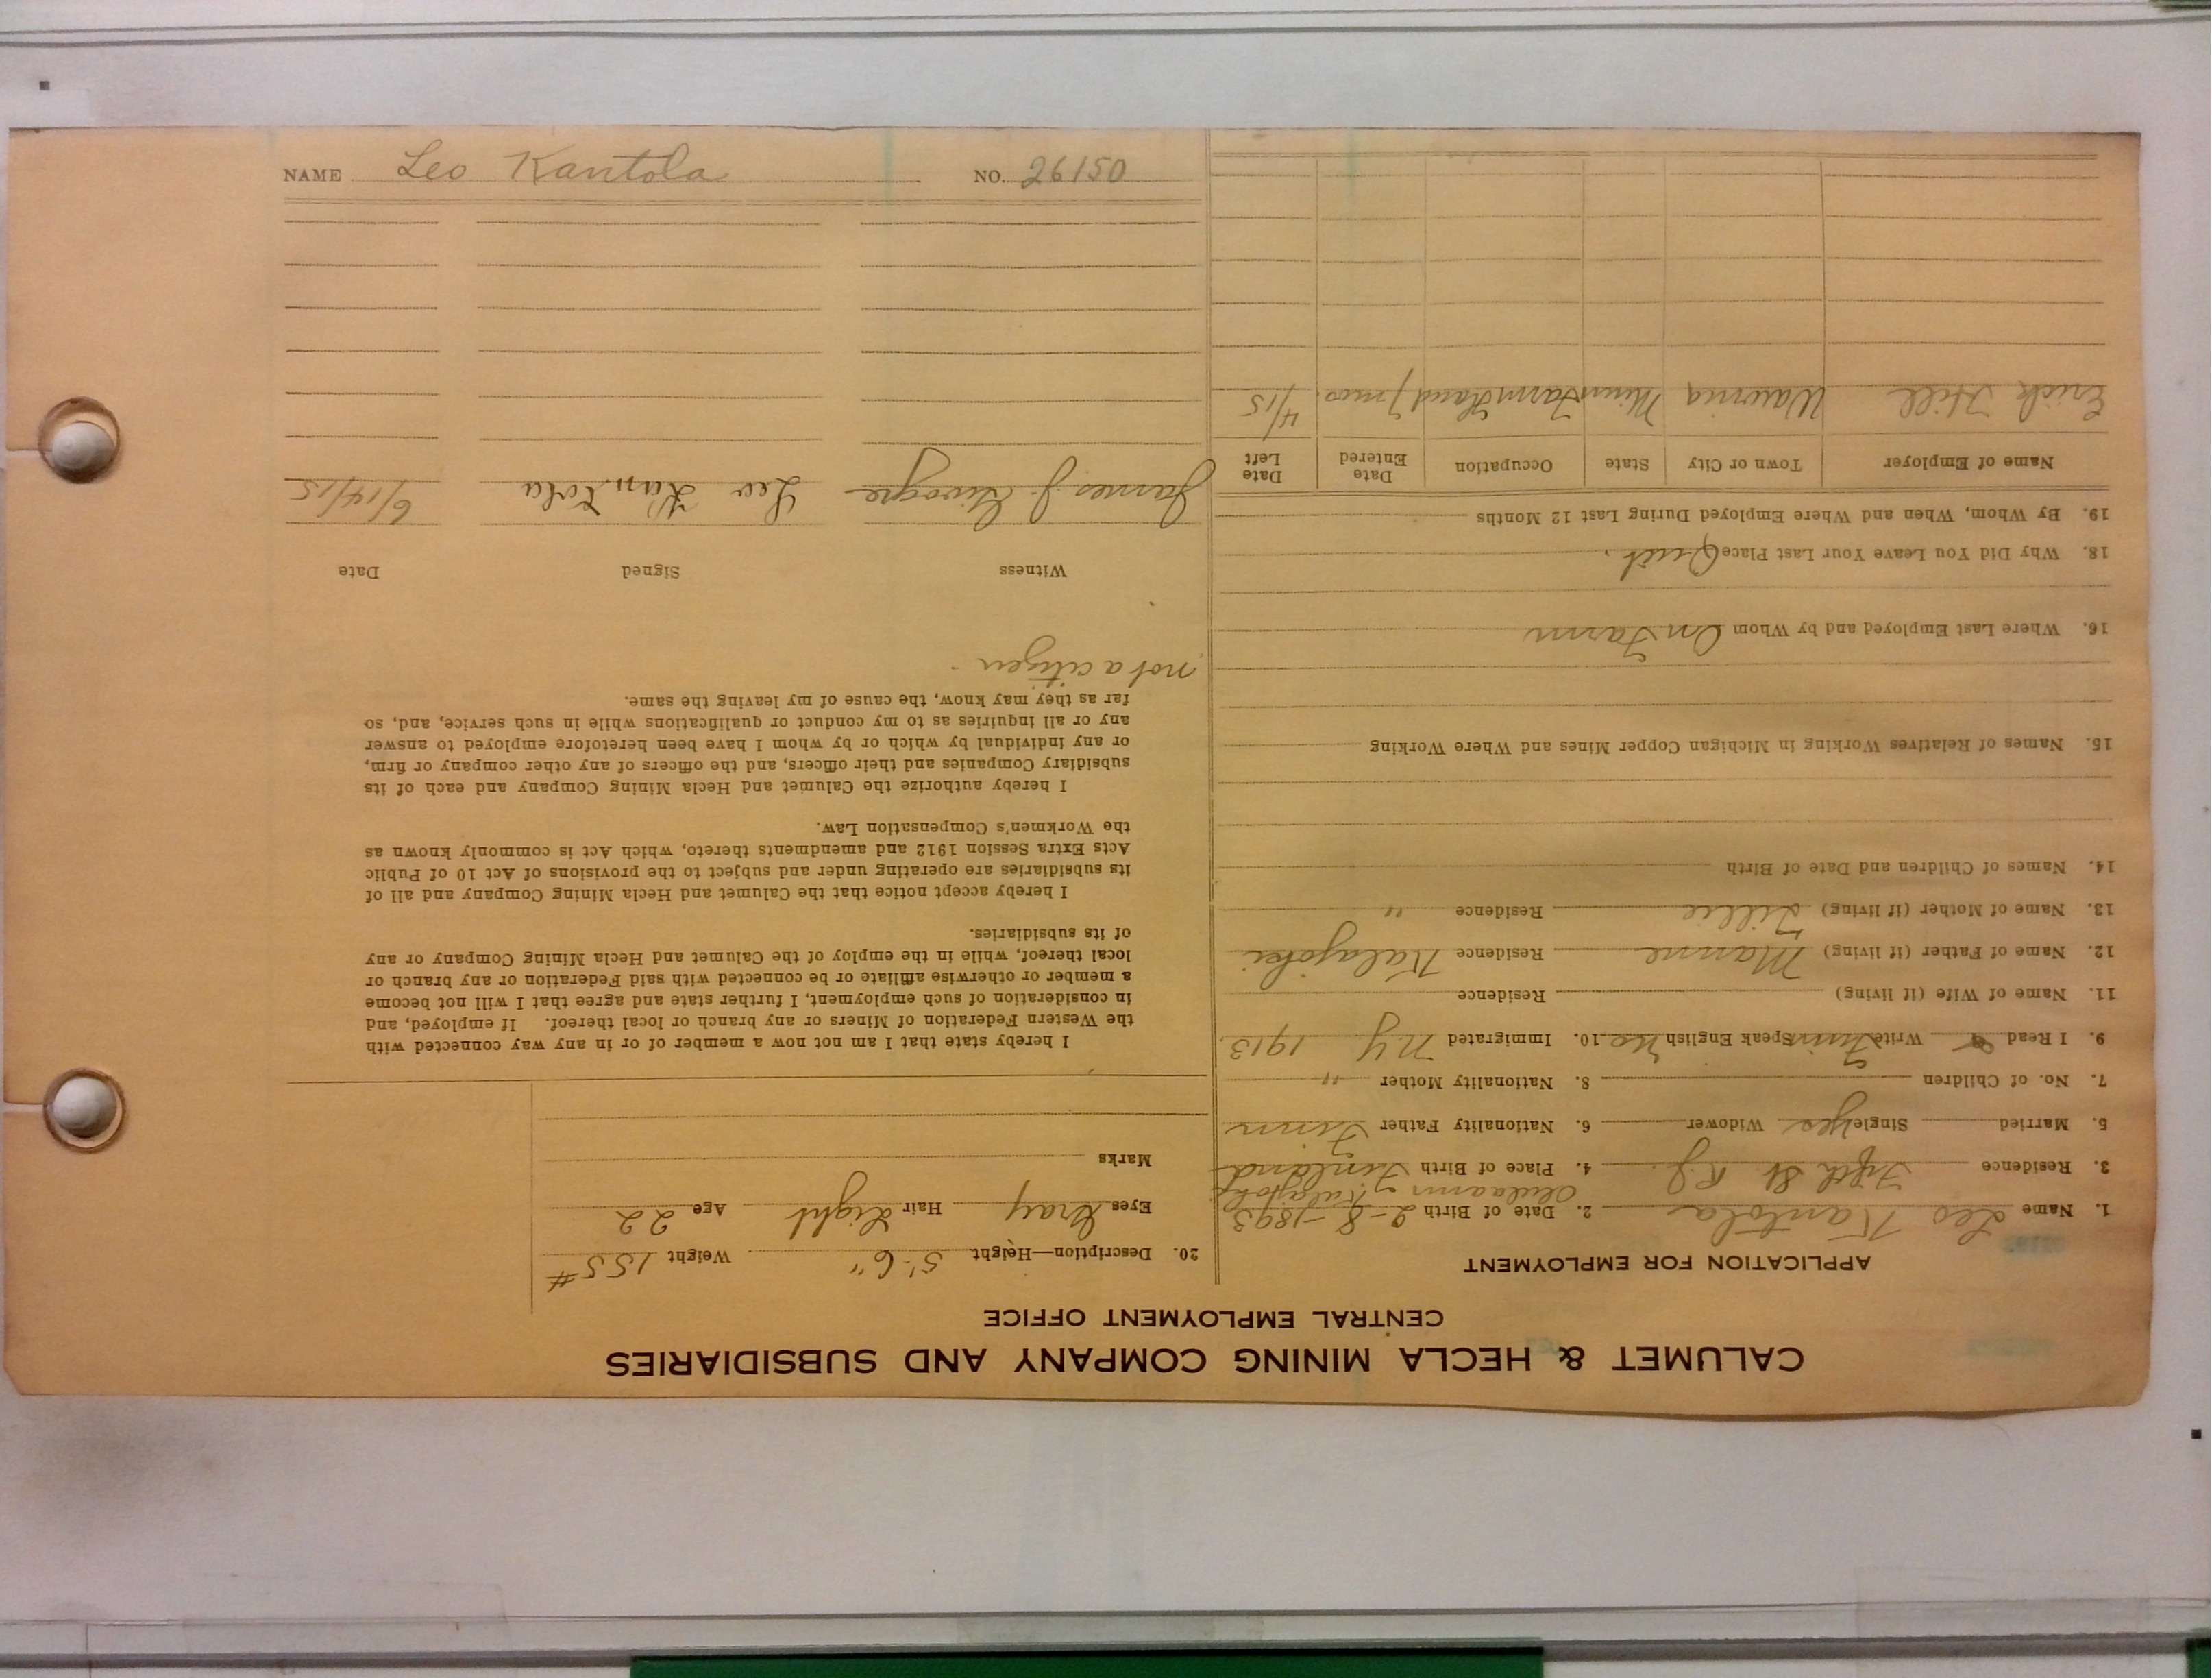 NAME Leo Kantola NO. 26150
CALUMET & HECLA MINING COMPANY AND SUBSIDIARIES
CENTRAL EMPLOYMENT OFFICE
APPLICATION FOR EMPLOYMENT
1. Name Leo Kantola 2. Date of Birth 2-8-1893
3. Residence Fifth St R.J. 4. Place of Birth Kalajoki Finland
5. Married Single Yes Widower 6. Nationality Father Finn
7. No. of Children 8. Nationality Mother "
9. I Read & Write Finn Speak English No 10. Immigrated N.Y. 1913
11. Name of Wife (if living) Residence
12. Name of Father (if living) Manne Residence Kalajoki
13. Name of Mother (if living) Lillie Residence "
14. Names of Children and Date of Birth
15. Names of Relatives Working in Michigan Copper Mines and Where Working
16. Where Last Employed and by Whom On Farm
18. Why Did You Leave Your Last Place Quit.
19. By Whom, When and Where Employed During Last 12 Months
Name of Employer Town or City State Occupation Date Entered Date Left
Erick Hill Minn Farm Hand 4/15
20. Description—Height 5'-6" Weight 155#
Eyes Gray Hair Light Age 22
Marks
I hereby state that I am not now a member of or in any way connected with
the Western Federation of Miners or any branch or local thereof. If employed, and
in consideration of such employment, I further state and agree that I will not become
a member or otherwise affiliate or be connected with said Federation or any branch or
local thereof, while in the employ of the Calumet and Hecla Mining Company or any
of its subsidiaries.
I hereby accept notice that the Calumet and Hecla Mining Company and all of
its subsidiaries are operating under and subject to the provisions of Act 10 of Public
Acts Extra Session 1912 and amendments thereto, which Act is commonly known as
the Workmen's Compensation Law.
I hereby authorize the Calumet and Hecla Mining Company and each of its
subsidiary Companies and their officers, and the officers of any other company or firm,
or any individual by which or by whom I have been heretofore employed to answer
any or all inquiries as to my conduct or qualifications while in such service, and, so
far as they may know, the cause of my leaving the same.
not a citizen.
Witness Signed Date
James J. Leo Kantola 6/14/15